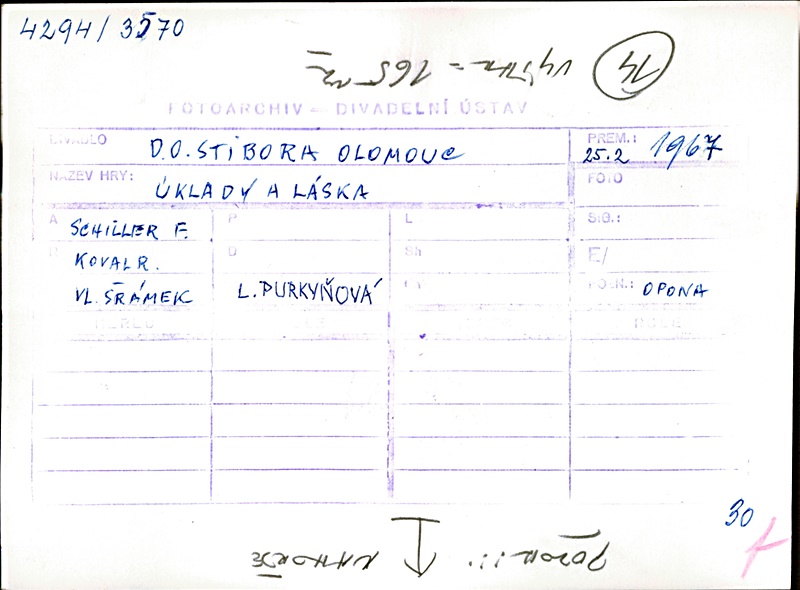 4294/3570
14
výška = 165 m
FOTOARCHIV – DIVADELNÍ ÚSTAV
DIVADLO D.O. STIBORA OLOMOUC
PREM.: 25.2 1967
NÁZEV HRY: ÚKLADY A LÁSKA
FOTO
A SCHILLER F.
P
L
SIG.:
KOVAL R.
D
Sh
E/
VL. ŠRÁMEK
L. PURKYŇOVÁ
POZN.: OPONA
30
POZOR!!! NAHOŘE